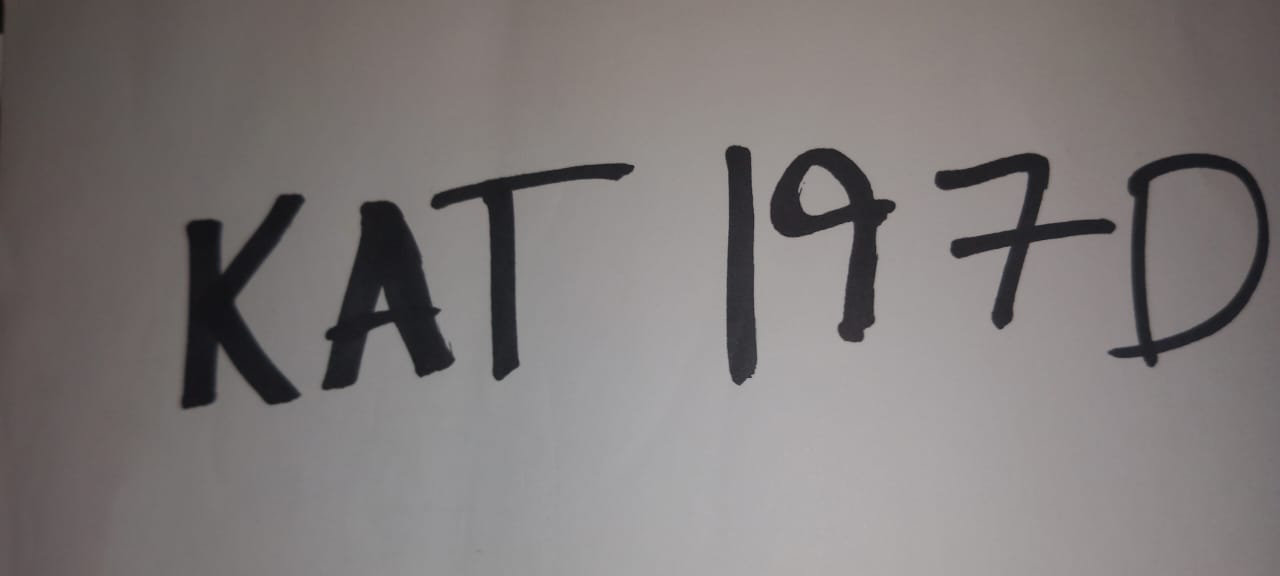 KAT 197D